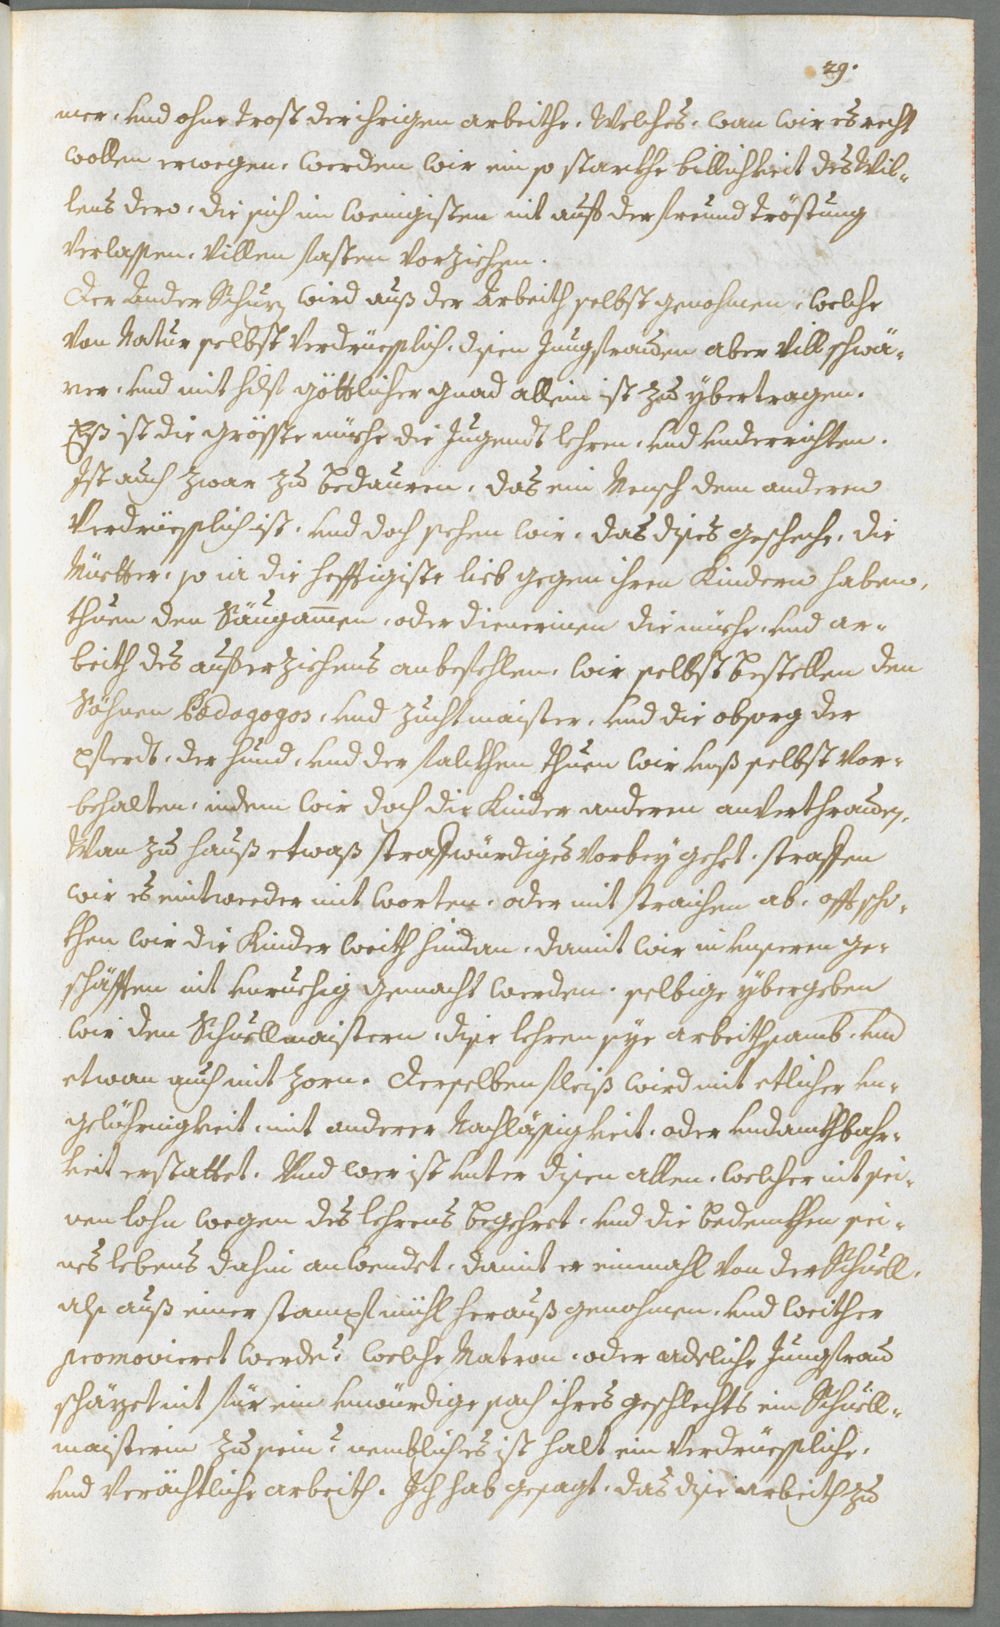 29.
mer, und ohne trost der ihrigen arbeithe. Welches, wan wir es recht
wollen erwegen, werden wir ein so starkhe billichkeit des Wil-
lens dero, die sich im wenigisten nit auff der freund tröstung
verlassen, villen fasten vorziehen.
Der ander Schuz wird auß der Arbeith selbst genohmen, welche
von Natur selbst verdrüesslich, disen Jungfrauen aber vill schwä-
rer, und mit hilf göttlicher gnad allein ist zu ybertragen.
Eß ist die gröste müehe die Jugendt lehren, und underrichten.
Ist auch zwar zu bedauren, das ein Mensch dem anderen
verdrüesslich ist, und doch sehen wir, das dises geschehe, die
Müetter, so ia die hefftigiste lieb gegen ihren Kindern haben,
thuen den Säugamen, oder dienerinen die müehe, und ar-
beith des aufferziehens anbefehlen, wir selbst bestellen den
Söhnen Pædagogos, und zuchtmaister, und die obsorg der
pferdt, der hund, und der falckhen thuen wir unß selbst vor-
behalten, indem wir doch die Kinder anderen anverthrauen,
Wan zu hauß etwaß straffwürdiges vorbey gehet, straffen
wir es eintweder mit worten, oder mit straichen ab, offt schi-
khen wir die Kinder weith hindan, damit wir in unseren ge-
schäfften nit unruehig gemacht werden. selbige ybergeben
wir den Schuellmaistern, dise lehren sye arbeithsamb, und
etwan auch mit zorn. Derselben fleiß wird mit etlicher un-
gelöhrnigkeit, mit anderer Nachlässigkeit, oder undanckhbahr-
keit erstattet. Und wer ist unter disen allen, welcher nit sei-
nen lohn wegen des lehrens begehret, und die bedenckhen sei-
nes lebens dahin anwendet, damit er einmahl von der Schuell,
alß auß einer stampfmühl herauß genohmen, und weither
promovieret werde? welche Matron, oder adeliche Jungfrau
schäzet nit für ein unwürdige sach ihres geschlechts ein Schuell-
maisterin zu sein? nemblich es ist halt ein verdrüessliche,
und verächtliche arbeith. Ich hab gesagt, das dise arbeith zu